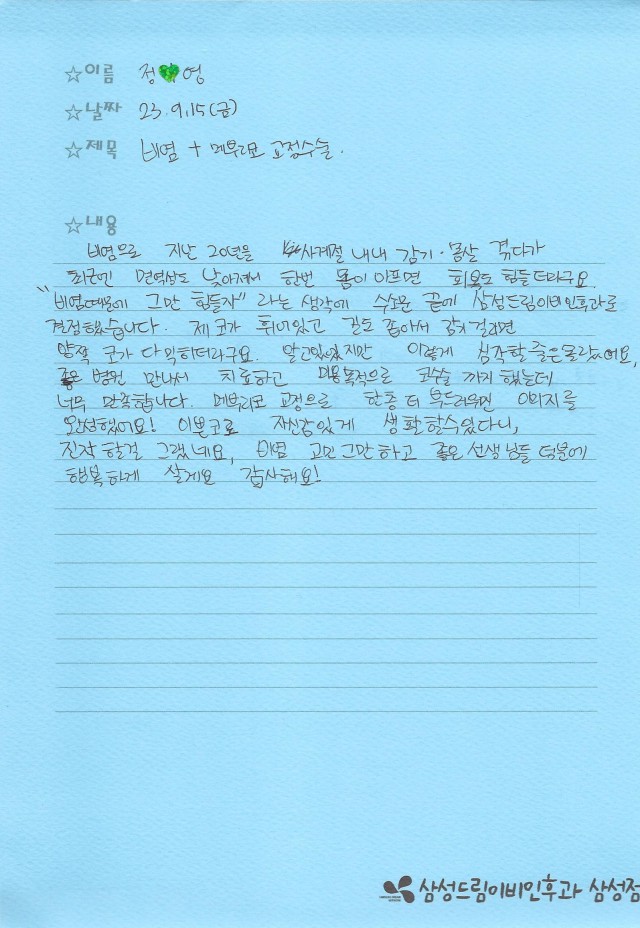 ☆이름 정💚영
☆날짜 23.9.15(금)
☆제목 비염 + 매부리코 교정수술.
☆내용
비염으로 지난 20년을 사계절 내내 감기·몸살 겪다가
최근엔 면역성도 낮아져서 한번 몸이 아프면 회복도 힘들더라구요.
"비염때문에 그만 힘들자" 라는 생각에 수소문 끝에 삼성드림이비인후과로
결정했습니다. 제 코가 휘어있고 길도 좁아서 감기 걸리면
양쪽 코가 다 막히더라구요. 알고있었지만 이렇게 심각할 줄은 몰랐어요,
좋은 병원 만나서 치료하고 미용목적으로 코수술 까지 했는데
너무 만족합니다. 메부리코 교정으로 한층 더 부드러우면 이미지를
완성했어요! 이쁜코로 자신감있게 생활할수있다니,
진작 할걸 그랬네요, 비염 고민 그만하고 좋은 선생님들 덕분에
행복하게 살게요 감사해요!
삼성드림이비인후과 삼성점